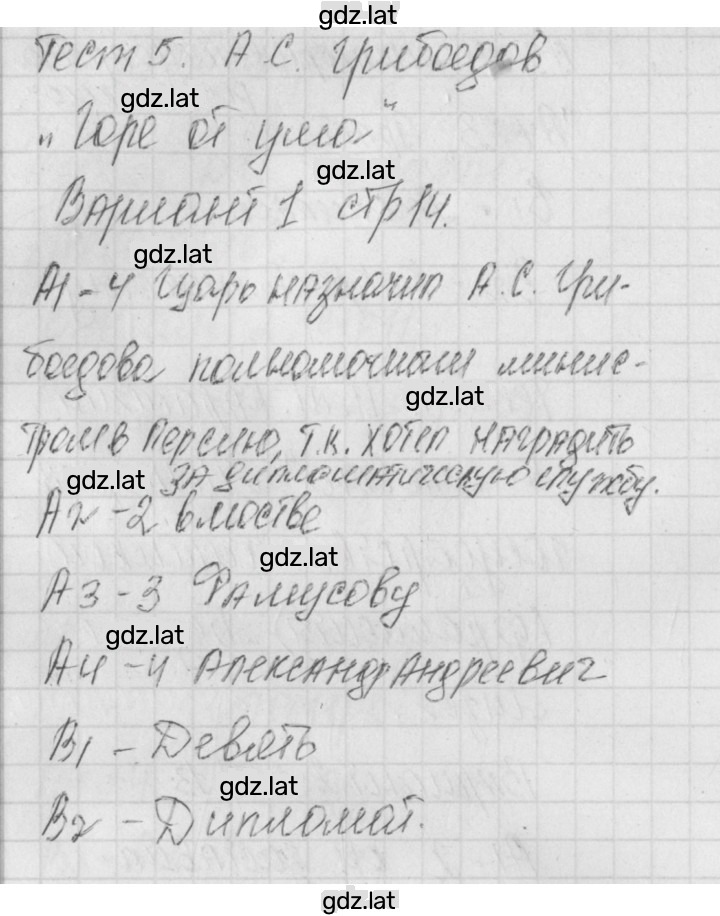 gdz.lat
Тест 5. А.С. Грибоедов
gdz.lat
„Горе от ума"
gdz.lat
Вариант 1 стр 14.
gdz.lat
А1 - 4 Царь назначил А.С. Гри-
боедова полномочным минис-
gdz.lat
тром в Персию, т.к. хотел наградить
за дипломатическую службу.
gdz.lat
А2 - 2 в
gdz.lat
А3 - 3 Фамусову
gdz.lat
А4 - 4 Александр Андреевич
В1 - Девять
gdz.lat
В2 - Дипломат.
gdz.lat